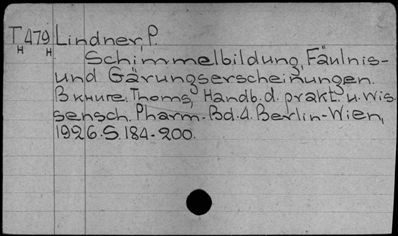 T 479 Lindner, P.
H H
Schimmelbildung, Fäulnis-
und Gärungserscheinungen.
В книге: Thoms, Handb. d. prakt. u. Wis
sensch. Pharm. Bd. 4. Berlin-Wien,
1926. S. 184-200.